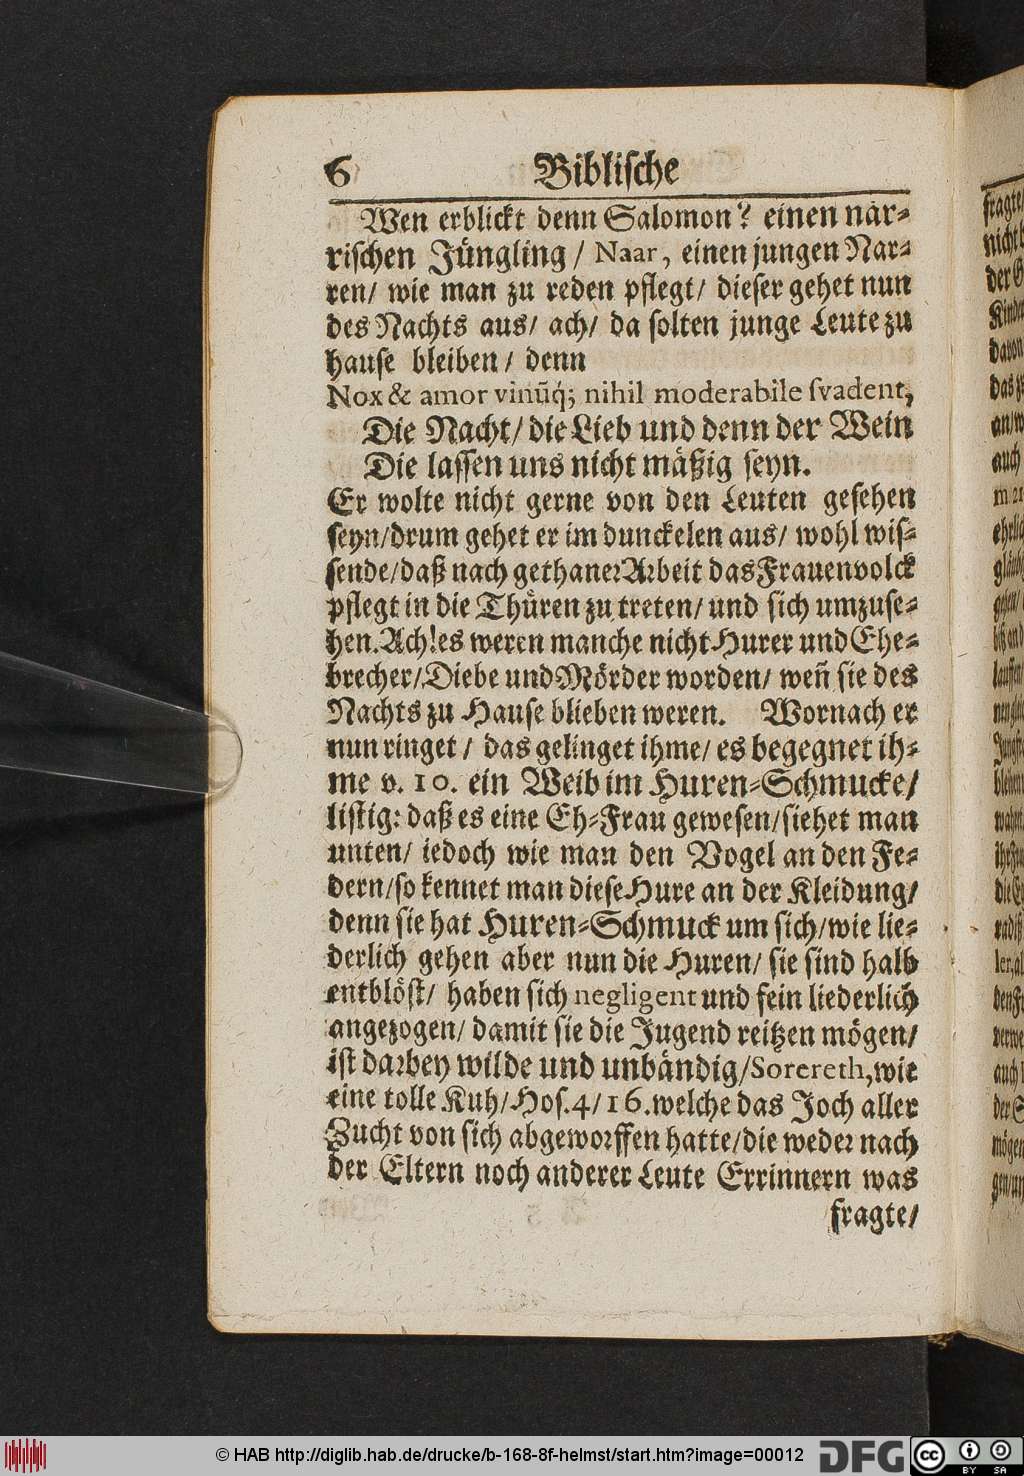 6 Biblische
Wen erblickt denn Salomon? einen när-
rischen Jüngling / Naar, einen jungen Nar-
ren/ wie man zu reden pflegt/ dieser gehet nun
des Nachts aus/ ach/ da solten junge Leute zu
hause bleiben / denn
Nox & amor vinũq́; nihil moderabile svadent,
Die Nacht/ die Lieb und denn der Wein
Die lassen uns nicht mäßig seyn.
Er wolte nicht gerne von den Leuten gesehen
seyn/drum gehet er im dunckelen aus/ wohl wis-
sende/daß nach gethaner Arbeit das Frauenvolck
pflegt in die Thüren zu treten/ und sich umzuse-
hen. Ach! es weren manche nicht Hurer und Ehe-
brecher/ Diebe und Mörder worden/ weñ sie des
Nachts zu Hause blieben weren. Wornach er
nun ringet / das gelinget ihme/ es begegnet ih-
me v. 10. ein Weib im Huren-Schmucke/
listig: daß es eine Eh-Frau gewesen/siehet man
unten/ iedoch wie man den Vogel an den Fe-
dern/so kennet man diese Hure an der Kleidung/
denn sie hat Huren-Schmuck um sich/wie lie-
derlich gehen aber nun die Huren/ sie sind halb
entblöst/ haben sich negligent und fein liederlich
angezogen/ damit sie die Jugend reitzen mögen/
ist darbey wilde und unbändig/Sorereth, wie
eine tolle Kuh/ Hos. 4/ 16. welche das Joch aller
Zucht von sich abgeworffen hatte/die weder nach
der Eltern noch anderer Leute Errinnern was
fragte/
© HAB http://diglib.hab.de/drucke/b-168-8f-helmst/start.htm?image=00012
DFG
cc BY SA